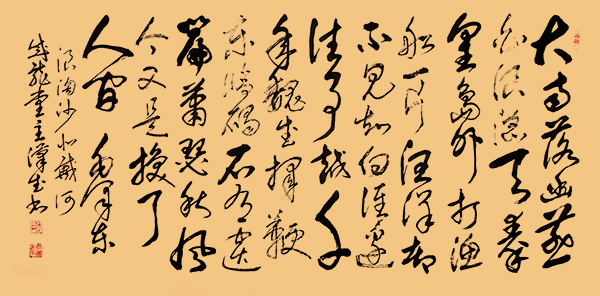 大雨落幽燕
白浪滔天秦
皇岛外打渔
船一片汪洋都
不见知向谁边
往事越千
年魏武挥鞭
东临碣石有遗
篇萧瑟秋风
今又是换了
人间 毛泽东
浪淘沙北戴河
龙堂主